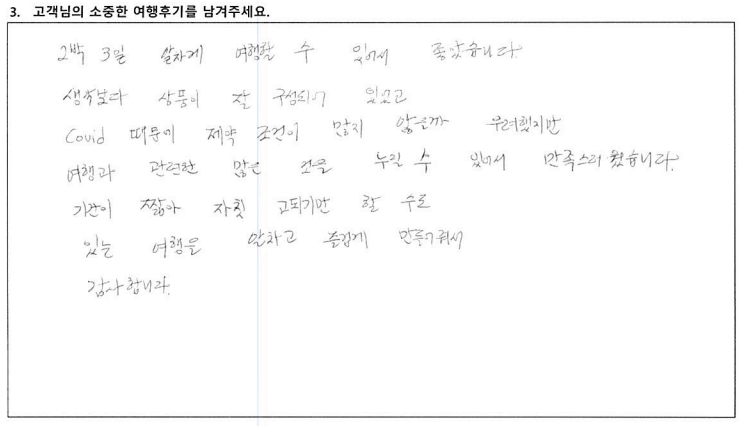 3. 고객님의 소중한 여행후기를 남겨주세요.
2박 3일 알차게 여행할 수 있어서 좋았습니다.
생각보다 상품이 잘 구성되어 있었고
Covid 때문에 제약 조건이 많지 않을까 우려했지만
여행과 관련한 많은 것을 누릴 수 있어서 만족스러웠습니다.
기간이 짧아 자칫 고되기만 할 수도
있는 여행을 알차고 즐겁게 만들어줘서
감사합니다.